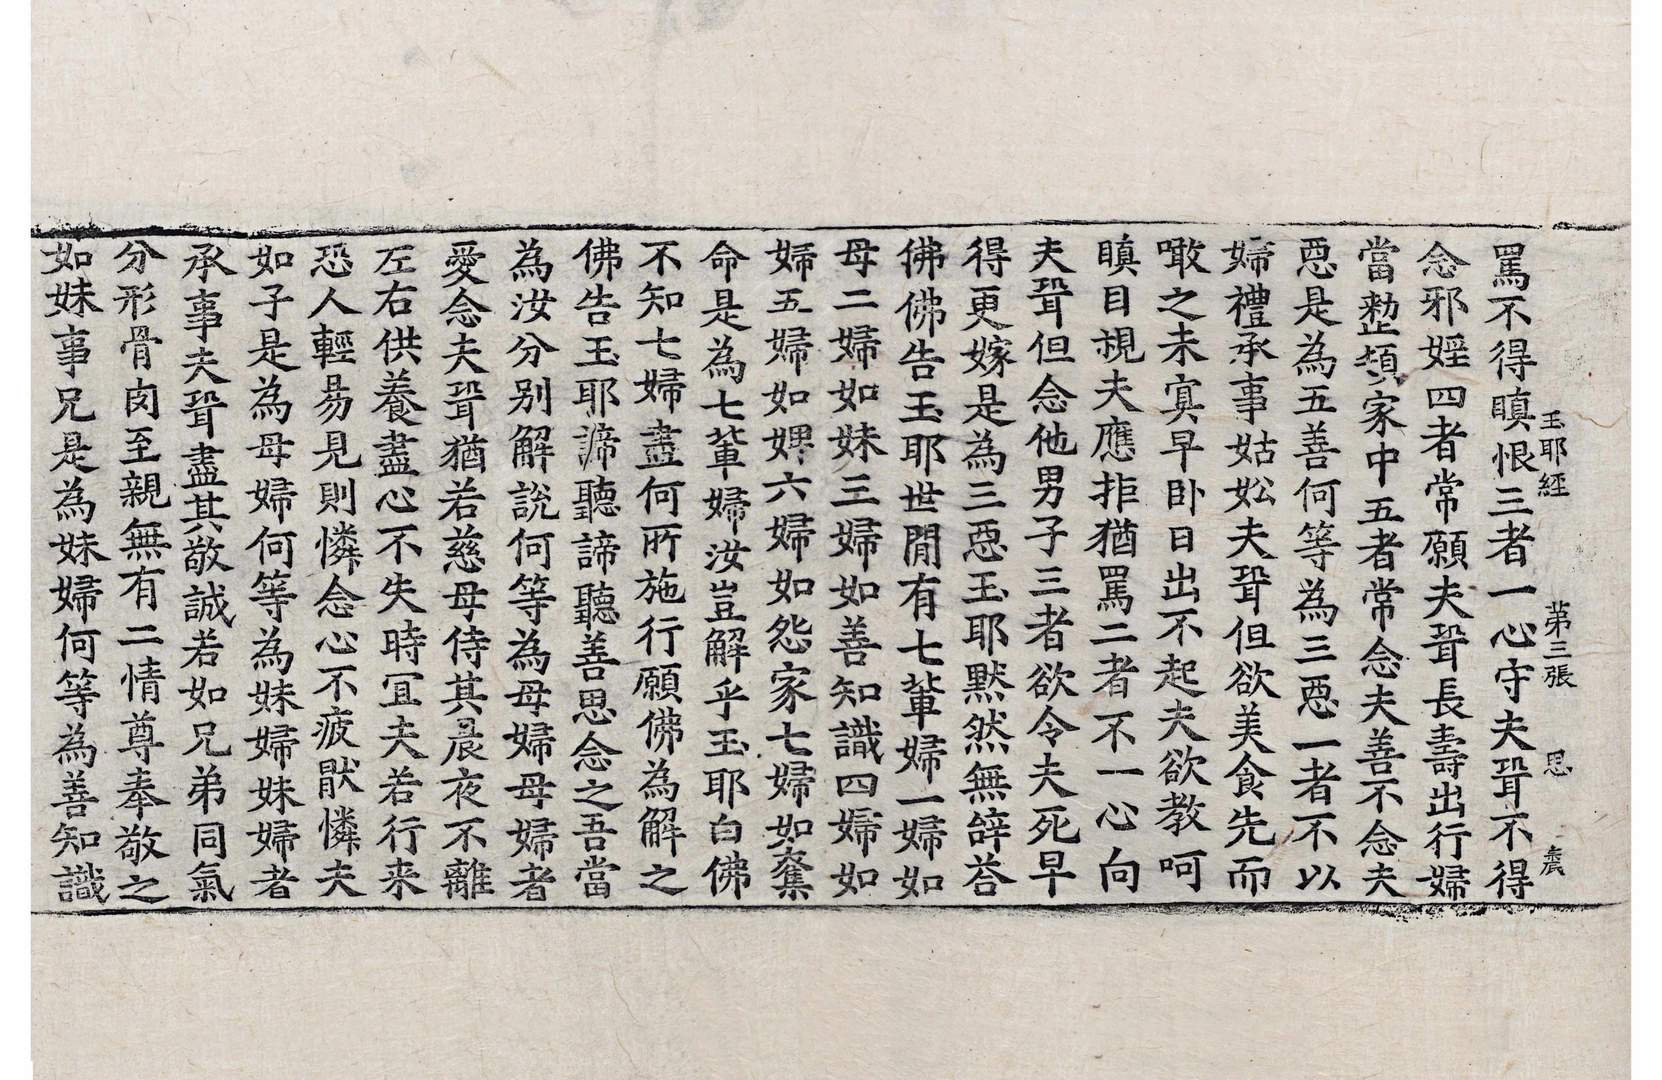 玉耶経 第三張 恩 齊
罵不得瞋恨三者一心守夫壻不得
念邪婬四者常願夫壻長壽出行婦
當整頓家中五者常念夫善不念夫
惡是為五善何等為三惡一者不以
婦禮承事姑妐夫壻但欲美食先而
噉之未冥早卧日出不起夫欲教呵
瞋目視夫應拒猶罵二者不一心向
夫壻但念他男子三者欲令夫死早
得更嫁是為三惡玉耶默然無辝荅
佛佛告玉耶世閒有七軰婦一婦如
母二婦如妹三婦如善知識四婦如
婦五婦如婢六婦如怨家七婦如奪
命是為七軰婦汝豈解乎玉耶白佛
不知七婦盡何所施行願佛為解之
佛告玉耶諦聽諦聽善思念之吾當
為汝分别解說何等為母婦母婦者
愛念夫壻猶若慈母侍其晨夜不離
左右供養盡心不失時冝夫若行来
恐人輕易見則憐念心不疲猒憐夫
如子是為母婦何等為妹婦妹婦者
承事夫壻盡其敬誠若如兄弟同氣
分形骨肉至親無有二情尊奉敬之
如妹事兄是為妹婦何等為善知識